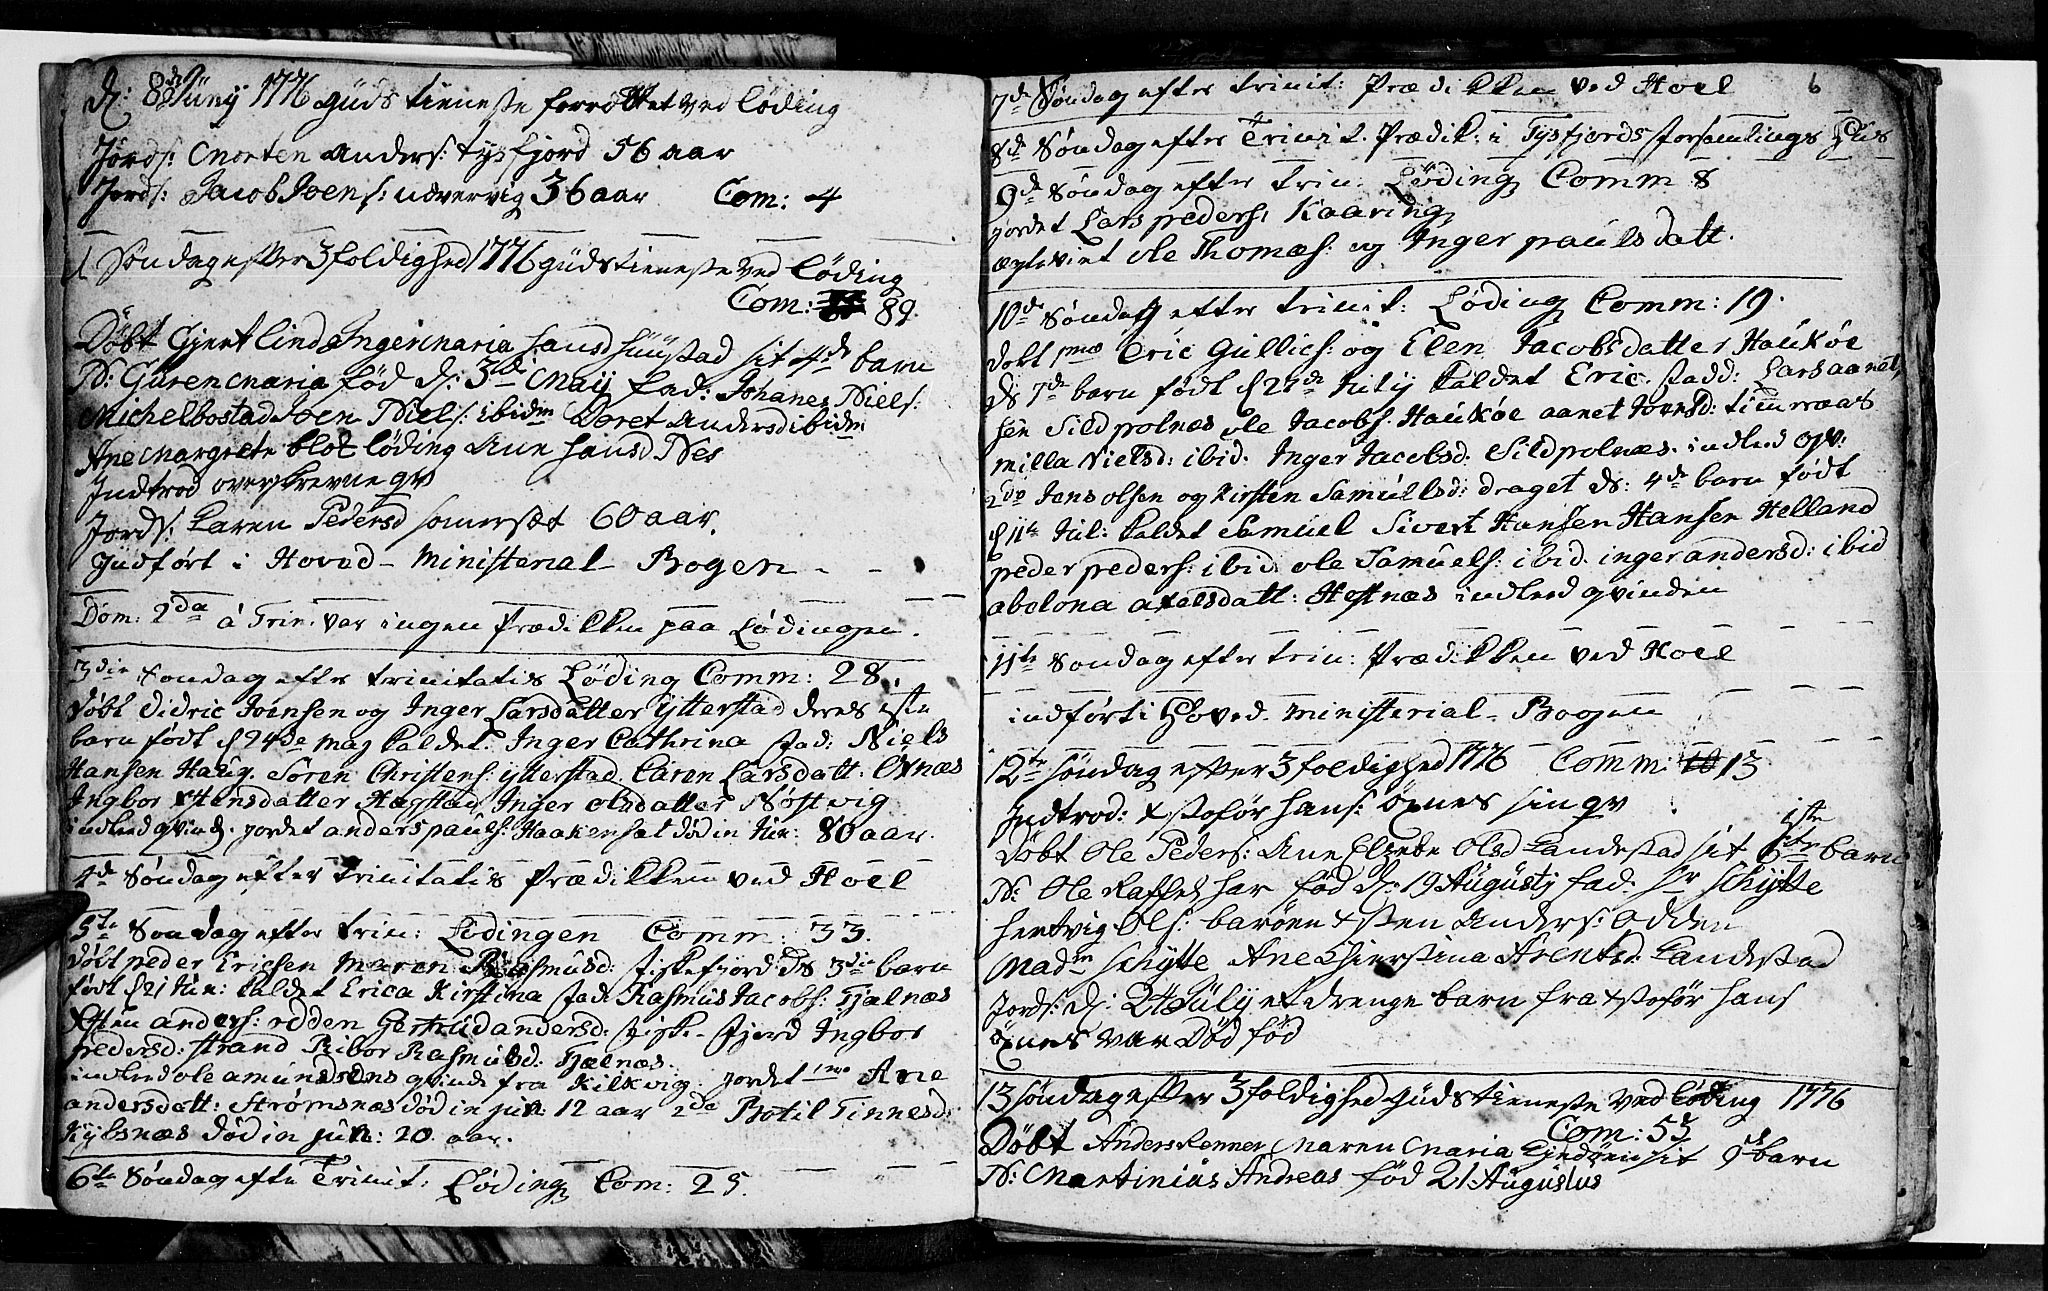 d: 8de Juny 1776 Guds tieneste forrettet ved Løding
Jords: Morten Anders: Tysfjord 56 aar
Jords: Jacob Joens: udvervig 36 aar Com: 4
1 Søndag efter 3foldighed 1776 gudstieneste ved Løding
Com: 89.
Døbt Gjert Lind Ingermaria hansd huustad sit 4de barn
N: Gurenmaria fød d: 3di May fad: Johanes Niels:
Michelbostad Joen Niels: ibidm Doret Andersd ibidm
Ane Margrete blot løding Ane hansd Nes
Indtrod overskrevne qv
Jords: Karen Pedersd somerset 60 aar.
Indført i Hoved-Ministerial-Bogen - -
Dom: 2da á Trin. var ingen Prædikken paa Lødingen.
3die Søndag efter trinitatis Løding Comm: 28.
døbt Didric Joensen og Inger Larsdatter Ytterstad deres 1ste
barn født d 24de May kaldet. Inger Cathrina fad: Niels
Hansen Haug. Sören Christens: ytterstad. Karen Larsdatt: Öxnæs
Ingbor Stensdatter Hagstad Inger olsdatter Nøstvig
indled qvind. jordet anders pauls: Haakenset død in Jun: 80 aar.
4de Søndag efter trinitatis Prædikken ved Hoel
5te Søndag efter trin: Lødingen Comm: 33.
døbt peder Ericsen Maren Rasmusd: fiskefjord Ds 3die barn
født d 21 Jun: kaldet Erica Kirstina fad: Rasmus Jacobs: Fjælnæs
Sten anders: odden Gertrud andersd: fiske-fjord Ingbor
pedersd: strand Ribor Rasmusd: Fjelnæs.
indled ole amundsens qvinde fra Kilkvig. jordet 1mo Ane
andersdatt: Strømsnæs død in jun: 12 aar 2do Botil Tinnesd:
Kybsnæs død in jun: 20. aar.
6te Søndag efter Trinit: Løding Com: 25.
6
7de Søndag efter trinit: Prædikken ved Hoel
8de Søndag efter Trinit. Prædik: i Tysfjords forsamlings Hus
9de Søndag efter trin: Løding Comm 8
jordet Lars peders: Kaaring
ægteviet ole Thomæs: og Inger paulsdatt.
10de Søndag efter trinit: Løding Comm: 19.
døbt 1mo Eric Gullics: og Elen Jacobsdatter Haukøe
Ds 7de barn født d 27de July kaldet Eric. fadd: Lars aanet
sen Sildpolnæs ole Jacobs. Haukøe aanet Joensd: timræas
milla Nielsd: ibid. Inger Jacobsd. Sildpolnæs. indled qv:
2do Jans olsen og Kirsten Samuelsd: draget Ds: 4de barn født
d 11te Jul: kaldet Samuel Sivert Hansen Hansen Helland
peder peders: ibid ole Samuels: ibid. inger andersd: ibid
abelona axelsdatt: Hestnæs indled qvinden
11te Søndag efter trin: Prædikken ved Hoel
indført i Hoved-Ministerial-Bogen
12te Søndag efter 3foldighed 1776 Comm: 13
Indtrod: Kristofør hans: øxnes sin qv
1ste
Døbt Ole Peders: Ane Elzebe Olsd Landestad sit barn
N: Ole Kaffes har fød d: 19 Augusty fad: Sr Schytte
hertvig Ols: barøen Sten Anders: Odden
Madm Schytte Ane Chierstina Arentsd Landestad
Jords: d: 24 July et drenge barn fra Kristofør hans
øxnes var Død fød
13 søndag efter 3foldighed Gudstieneste ved Løding 1776
Com: 55
Døbt Anders Renner Maren Maria Ejedøen sit 9de barn
N: Martinius Andreas fød 21 Augustus